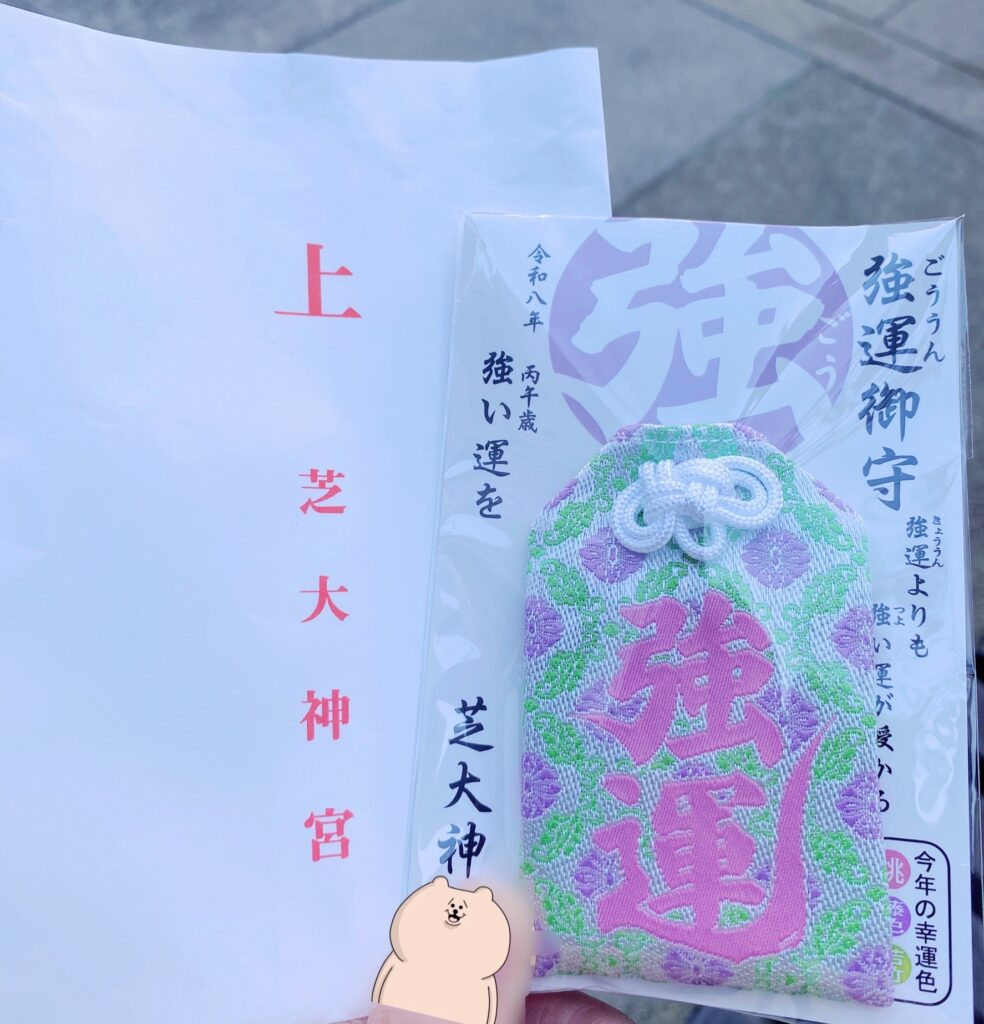 上
芝大神宮
強運御守
ごううん
強運よりも
きょううん
強い運が授かる
つよ
強
ごう
令和八年
丙午歳
強い運を
芝大神
強運
今年の幸運色